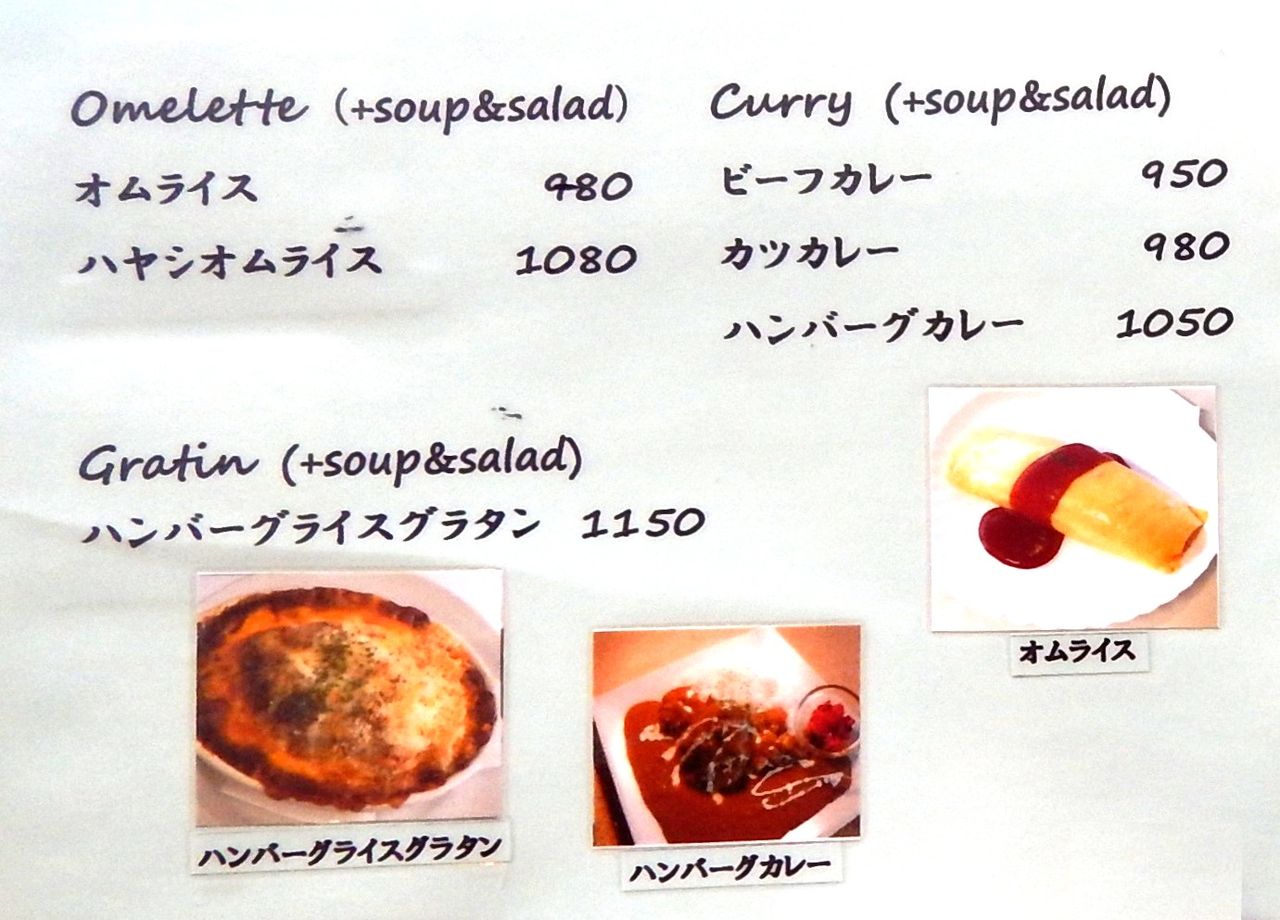 Omelette (+soup&salad)
オムライス 980
ハヤシオムライス 1080
Curry (+soup&salad)
ビーフカレー 950
カツカレー 980
ハンバーグカレー 1050
Gratin (+soup&salad)
ハンバーグライスグラタン 1150
オムライス
ハンバーグライスグラタン
ハンバーグカレー